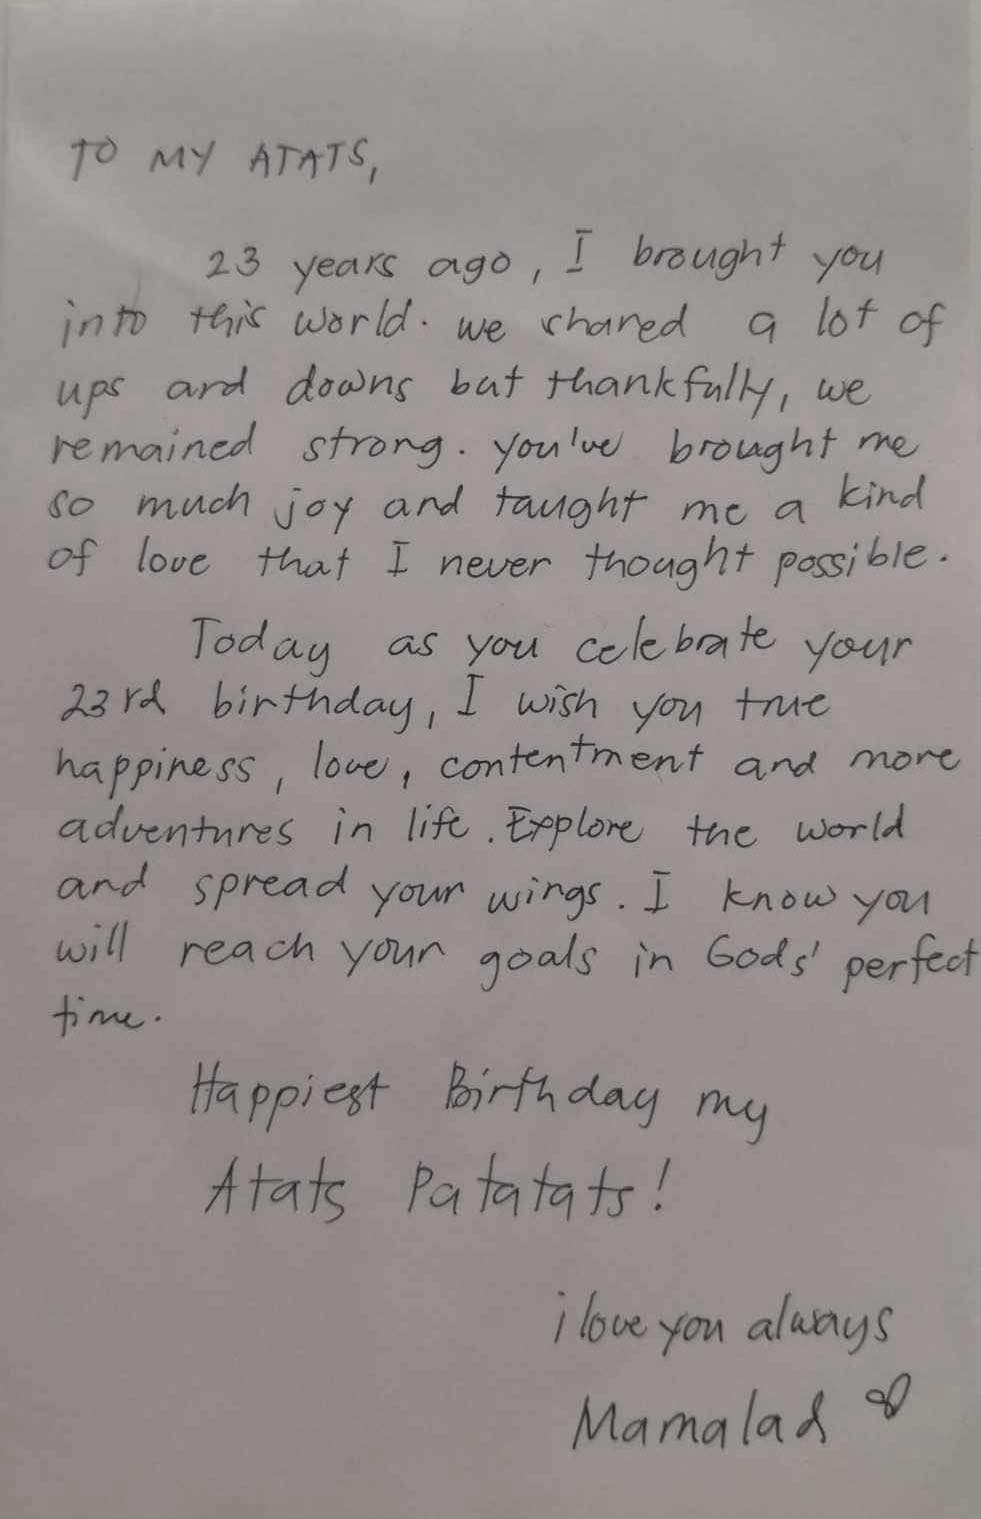 TO MY ATATS,
23 years ago, I brought you
into this world. we shared a lot of
ups and downs but thankfully, we
remained strong. you've brought me
so much joy and taught me a kind
of love that I never thought possible.
Today as you celebrate your
23rd birthday, I wish you true
happiness, love, contentment and more
adventures in life. Explore the world
and spread your wings. I know you
will reach your goals in Gods' perfect
time.
Happiest Birthday my
Atats Patatats!
i love you always
Mamalad